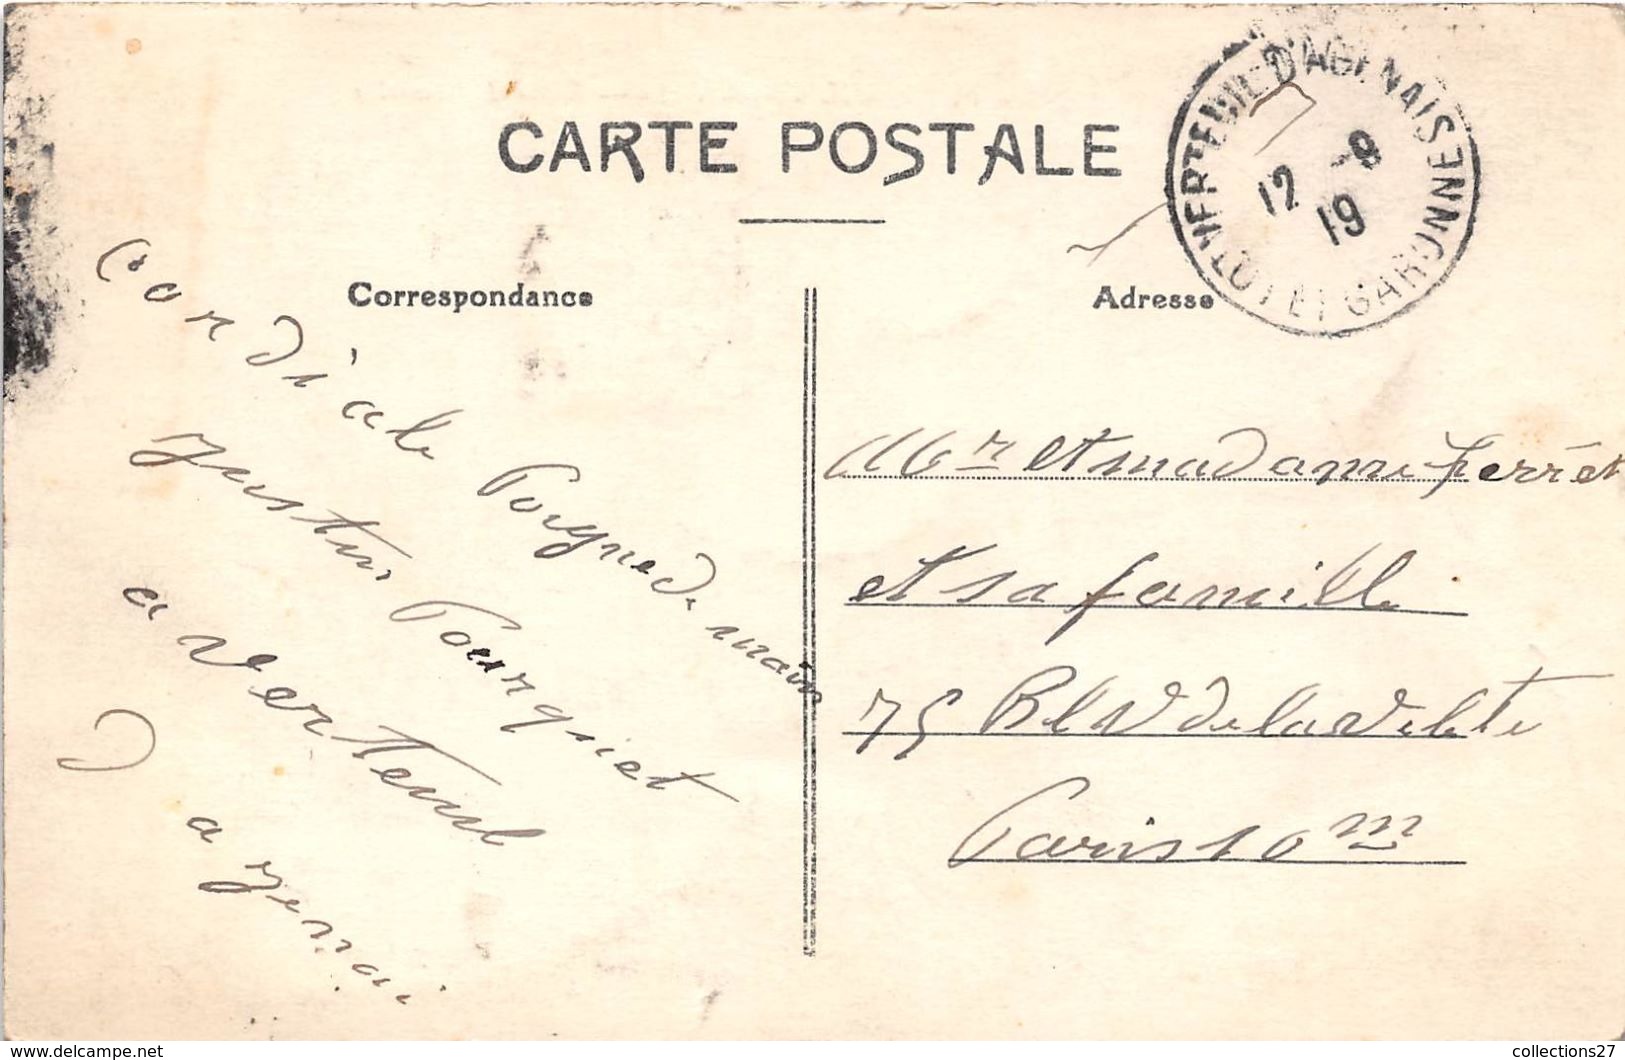 CARTE POSTALE
VERTEUIL D'AGENAIS
12 -9
19
LOT ET GARONNE
Correspondance
Adresse
Cordiale Poigne de main
Justin Pourquet
a verteuil
D agenai
Mr et madame Ferret
et sa famille
75 Blvd de la Vilete
Paris 10 m
www.delcampe.net
collections27